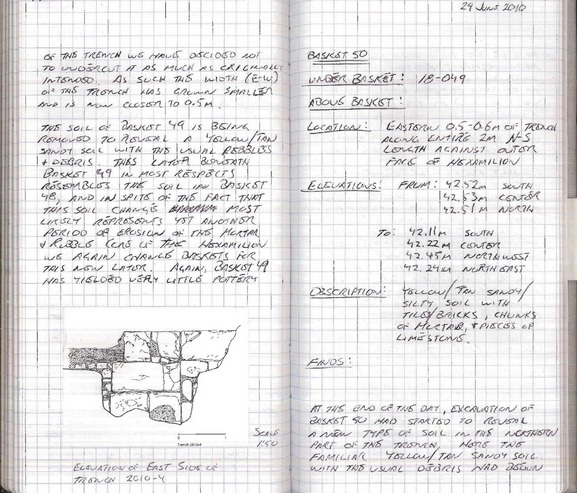 OF THE TRENCH WE HAVE DECIDED NOT
TO UNDERCUT IT AS MUCH AS ORIGINALLY
INTENDED. AS SUCH THE WIDTH (E-W)
OF THE TRENCH HAS GROWN SMALLER
AND IS NOW CLOSER TO 0.5M.
THE SOIL OF BASKET 49 IS BEING
REMOVED TO REVEAL A YELLOW/TAN
SANDY SOIL WITH THE USUAL PEBBLES
& DEBRIS. THIS LAYER BENEATH
BASKET 49 IN MOST RESPECTS
RESEMBLES THE SOIL IN BASKET
48, AND IN SPITE OF THE FACT THAT
THIS SOIL CHANGE MOST
LIKELY REPRESENTS YET ANOTHER
PERIOD OF EROSION OF THE MORTAR
& RUBBLE CORE OF THE HEXAMILION
WE AGAIN CHANGE BASKETS FOR
THIS NEW LAYER. AGAIN, BASKET 49
HAS YIELDED VERY LITTLE POTTERY
Trench 2010-4
SCALE
1:50
ELEVATION OF EAST SIDE OF
TRENCH 2010-4
29 JUNE 2010
BASKET 50
UNDER BASKET: 18-049
ABOVE BASKET:
LOCATION: EASTERN 0.5-0.6M OF TRENCH
ALONG ENTIRE 2M N-S
LENGTH AGAINST OUTER
FACE OF HEXAMILION
ELEVATIONS: FROM: 42.52m SOUTH
42.53m CENTER
42.51m NORTH
TO: 42.11m SOUTH
42.22m CENTER
42.45m NORTHWEST
42.24m NORTHEAST
DESCRIPTION: YELLOW/TAN SANDY/
SILTY SOIL WITH
TILES/BRICKS, CHUNKS
OF MORTAR, & PIECES OF
LIMESTONE.
FINDS:
AT THE END OF THE DAY, EXCAVATION OF
BASKET 50 HAD STARTED TO REVEAL
A NEW TYPE OF SOIL IN THE NORTHERN
PART OF THE TRENCH. HERE THE
FAMILIAR YELLOW/TAN SANDY SOIL
WITH THE USUAL DEBRIS HAD BEGUN